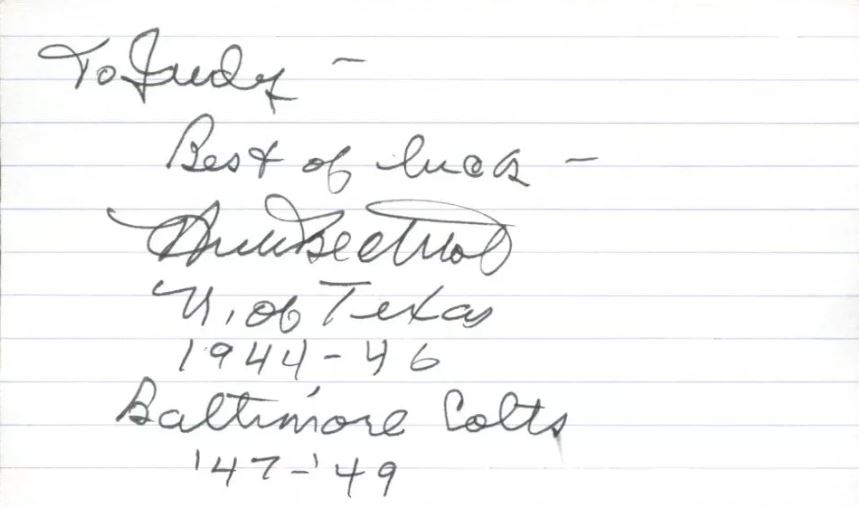 To Judy -
Best of luck -
Hub Bechtol
U. of Texas
1944-46
Baltimore Colts
'47-'49